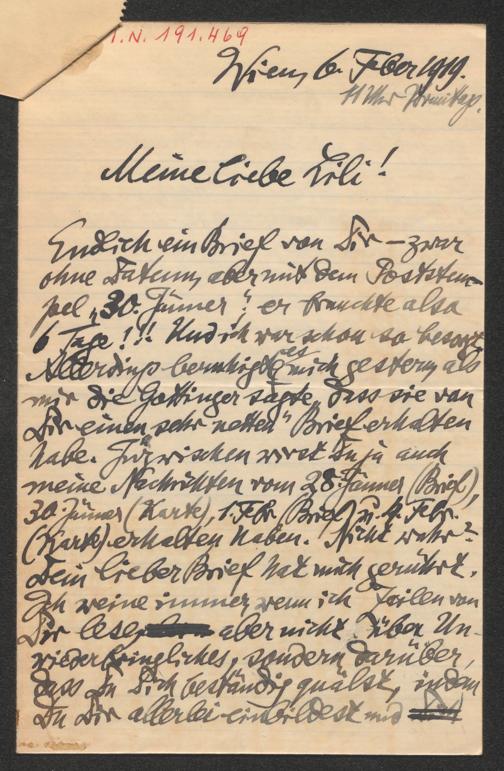 I.N. 191.469
Wien, 6. Feber 1919.
11 Uhr Vormittag.
Meine liebe Lili!
Endlich ein Brief von Dir – zwar
ohne Datum, aber mit dem Poststem-
pel „30. Jänner“; er brauchte also
6 Tage!!! Und ich war schon so besorgt.
Allerdings beruhigte es mich gestern, als
mir die Gottinger sagte, „dass sie von
Dir einen sehr netten“ Brief erhalten
habe. Inzwischen wirst Du ja auch
meine Nachrichten vom 28. Jänner (Brief),
30. Jänner (Karte), 1. Febr. (Brief) u. 4. Febr.
(Karte) erhalten haben. Nicht wahr?
Dein lieber Brief hat mich gerührt.
Ich weine immer, wenn ich Zeilen von
Dir lese, aber nicht über Un-
wiederbringliches, sondern darüber,
dass Du Dich beständig quälst, indem
Du Dir allerlei einbildest und